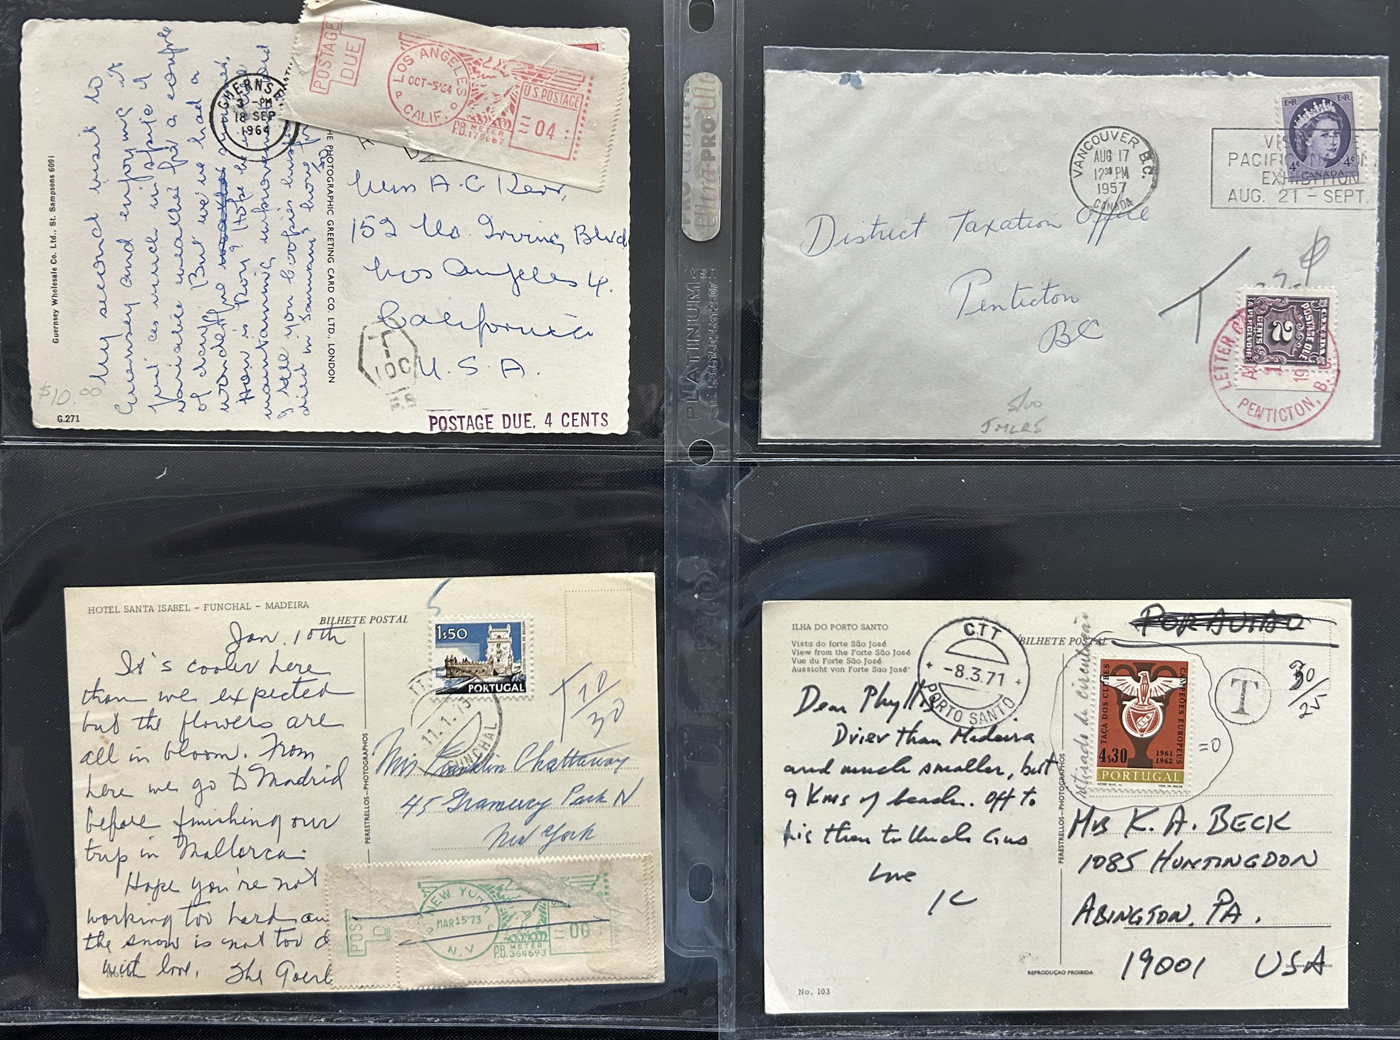 Guernsey Wholesale Co. Ltd., St. Sampsons 6091
My second visit to
Guernsey and enjoying it
just as much inspite of
variable weather for a couple
of days. But we've had a
wonderful
How is Roy? Hope he is
maintaining improvement and
I tell you
died in January
G.271
$10.00
GUERNSEY
3 - PM
18 SEP
1964
THE PHOTOGRAPHIC GREETING CARD CO. LTD., LONDON
POSTAGE DUE
LOS ANGELES
OCT-5'64
CALIF.
P.O.
P.B. METER
U.S. POSTAGE
04
Miss A. C. Kerr,
152 No. Irving Blvd
Los Angeles 4.
California
U.S.A.
T
10C
POSTAGE DUE. 4 CENTS
ultra PRO
PLATINUM
VANCOUVER B.C.
AUG 17
12 30 PM
1957
CANADA
VIS
PACIFIC NATION
EXHIBITION
AUG. 21 - SEPT.
E R
4¢ 4¢
CANADA
District Taxation Office
Penticton
BC
T
CANADA
POSTAGE DUE
2
CENTS
LETTER C
PENTICTON, B.
5/00
HOTEL SANTA ISABEL - FUNCHAL - MADEIRA
BILHETE POSTAL
Jan. 10th
It's cooler here
than we expected
but the flowers are
all in bloom. From
here we go to Madrid
before finishing our
trip in Mallorca.
Hope you're not
working too hard an
the snow is not too d
with love, The
5
1$50
PORTUGAL
11.1.73
FUNCHAL
T 10/30
PERESTRELLOS—PHOTOGRAPHOS
Mrs Franklin Chattaway
45 Gramercy Park N
New York
POS
D
NEW YORK
MAR 15'73
N.Y.
P.B. METER
364693
00
ILHA DO PORTO SANTO
Vista do forte São José
View from the Forte São José
Vue du Forte São José
Aussicht von Forte São José
BILHETE POSTAL
CTT
-8.3.71
PORTO SANTO
Dear Phyllis
Drier than Madeira
and much smaller, but
9 Kms of beach. Off to
his then to Uncle Gus
Love
K
PERESTRELLOS—PHOTOGRAPHOS
REPRODUÇÃO PROIBIDA
No. 103
retirado da circulação
TAÇA DOS CLUBES
CAMPEÕES EUROPEUS
4$30
1961
1962
PORTUGAL
=0
T
30/25
MRS K. A. BECK
1085 HUNTINGDON
ABINGTON. PA.
19001 USA